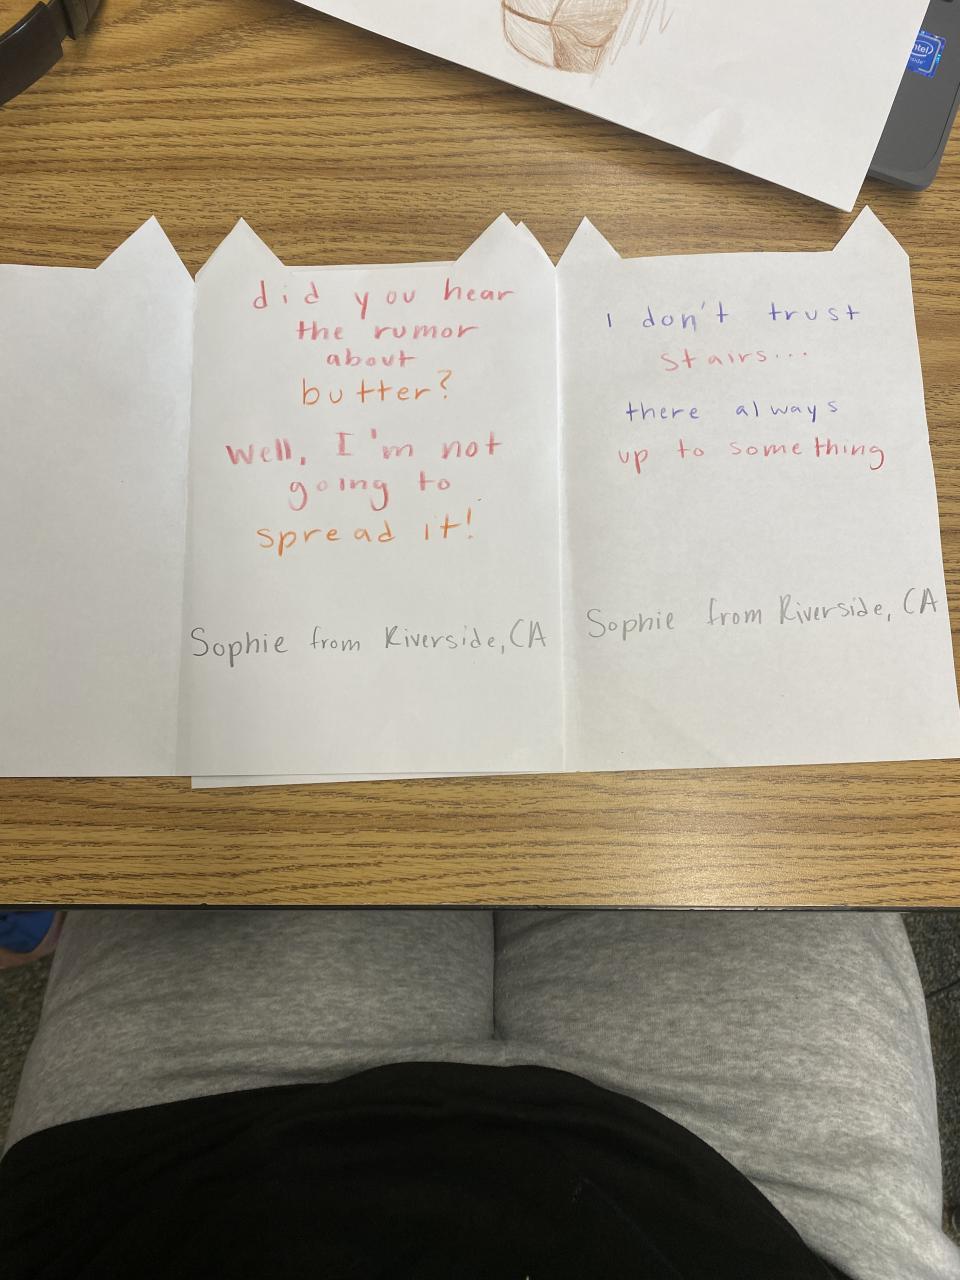 did you hear
the rumor
about
butter?
Well, I'm not
going to
spread it!
Sophie from Riverside, CA
I don't trust
stairs...
there always
up to something
Sophie from Riverside, CA
intel
inside